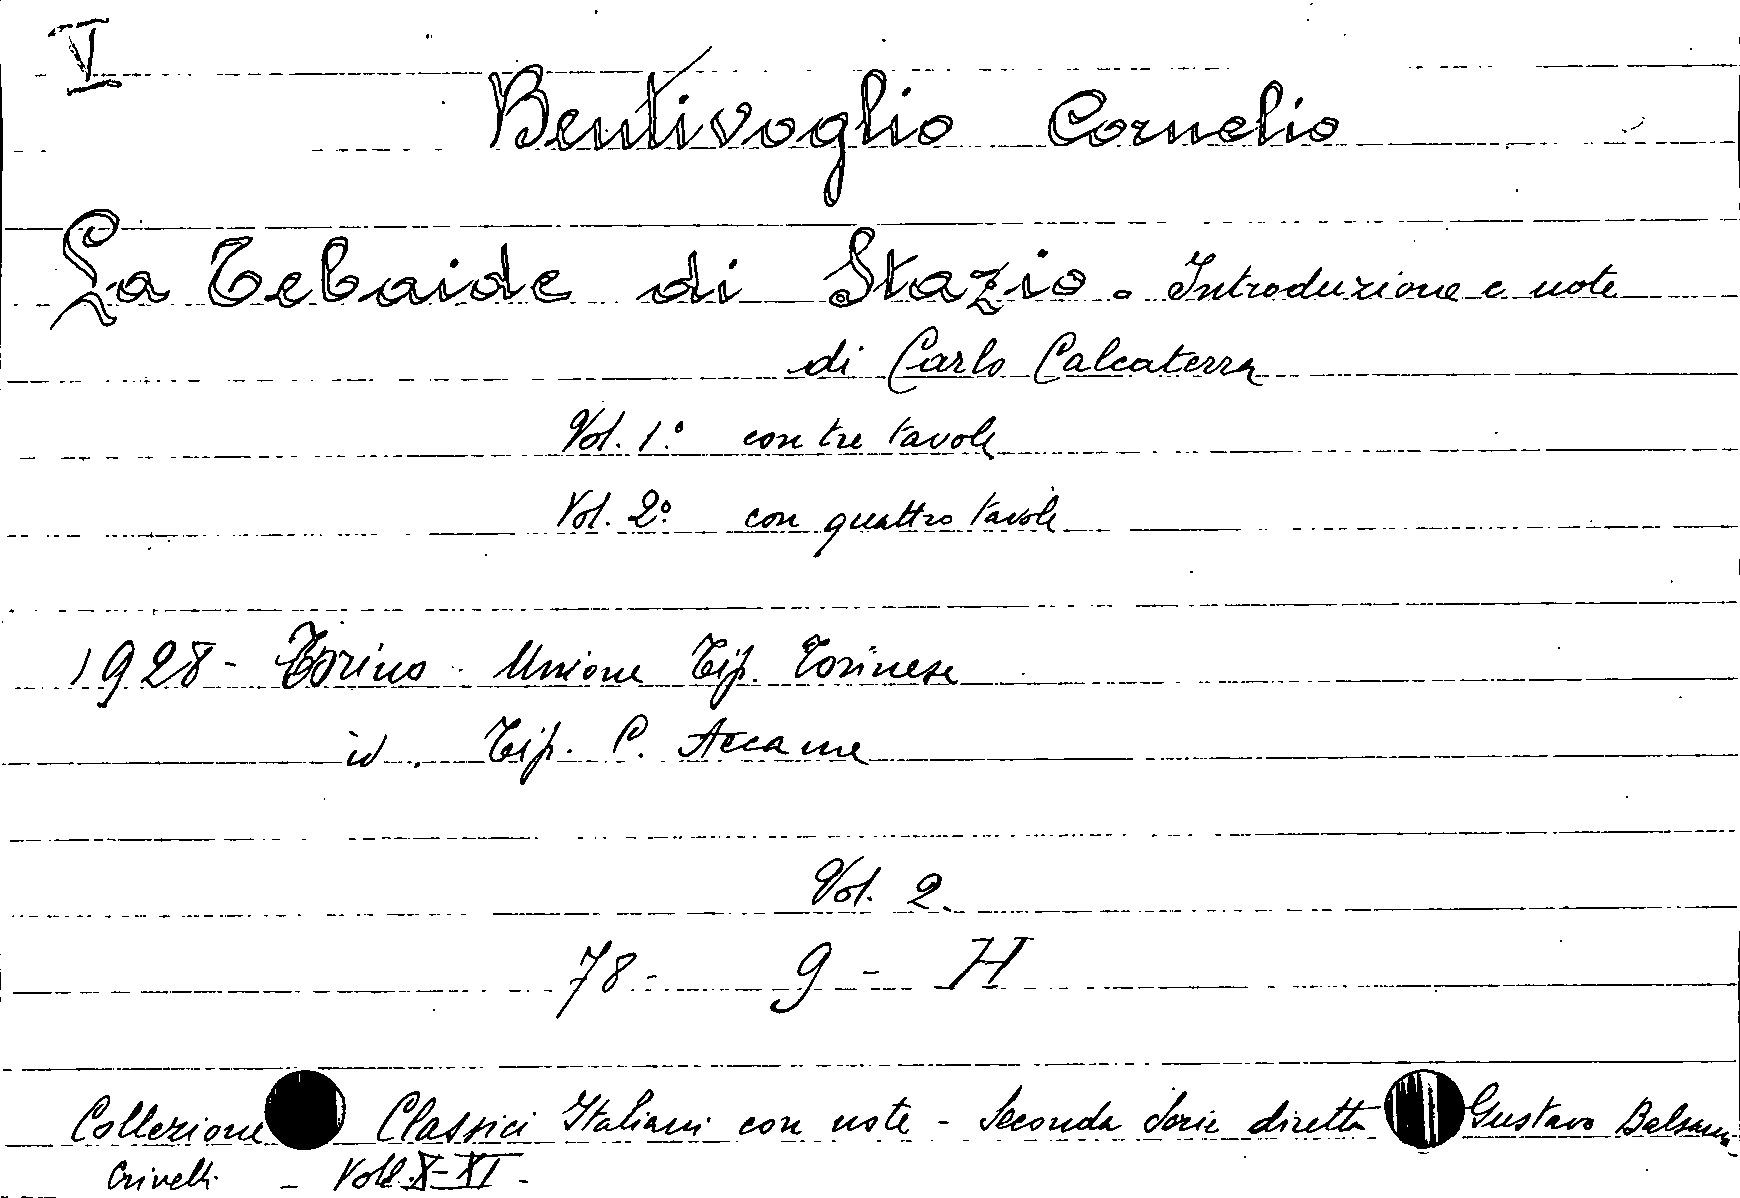 V
Bentivoglio Cornelio
La Tebaide di Stazio - Introduzione e note
di Carlo Calcaterra
Vol. 1° con tre tavole
Vol. 2° con quattro tavole
1928 - Torino - Unione Tip. Torinese
id. Tip. C. Accame
Vol. 2.
78 - 9 - H
Collezione Classici Italiani con note - Seconda Serie diretta Gustavo Balsamo
Crivelli - Voll. X-XI -